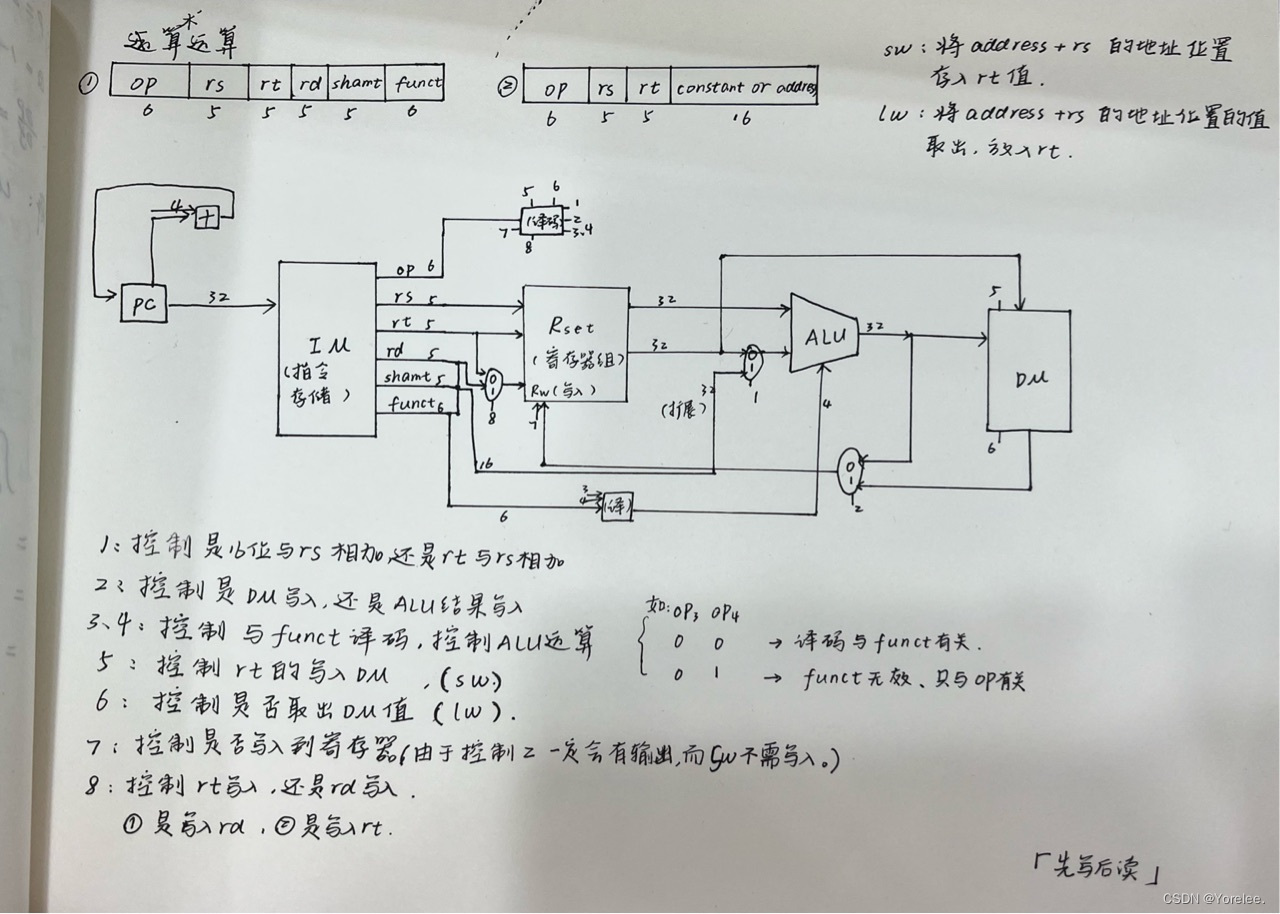 运算
op rs rt rd shamt funct
6 5 5 5 5 6
② op rs rt constant or address
6 5 5 16
sw：将address+rs 的地址位置
存入rt值．
lw：将address+rs 的地址位置的值
取出，放入rt．
4 +
PC
32
IM
(指令
存储)
op 6
rs 5
rt 5
rd 5
shamt 5
funct 6
译码
5 6
1
2
3、4
7
8
Rset
(寄存器组)
Rw(写入)
7
0
1
8
32
32
0
1
1
32
(扩展)
ALU
32
4
5
DM
6
0
1
2
16
3
4
(译)
6
1：控制是16位与rs相加，还是rt与rs相加
2：控制是DM写入，还是ALU结果写入
3、4：控制与funct译码，控制ALU运算
5：控制rt的写入DM ，(sw)
6：控制是否取出DM值 (lw)．
7：控制是否写入到寄存器(由于控制2一定会有输出，而sw不需写入。)
8：控制rt写入，还是rd写入．
①是写入rd，②是写入rt．
如：OP3 OP4
0 0 → 译码与funct有关．
0 1 → funct无效、只与OP有关
「先写后读」
CSDN @Yorelee.